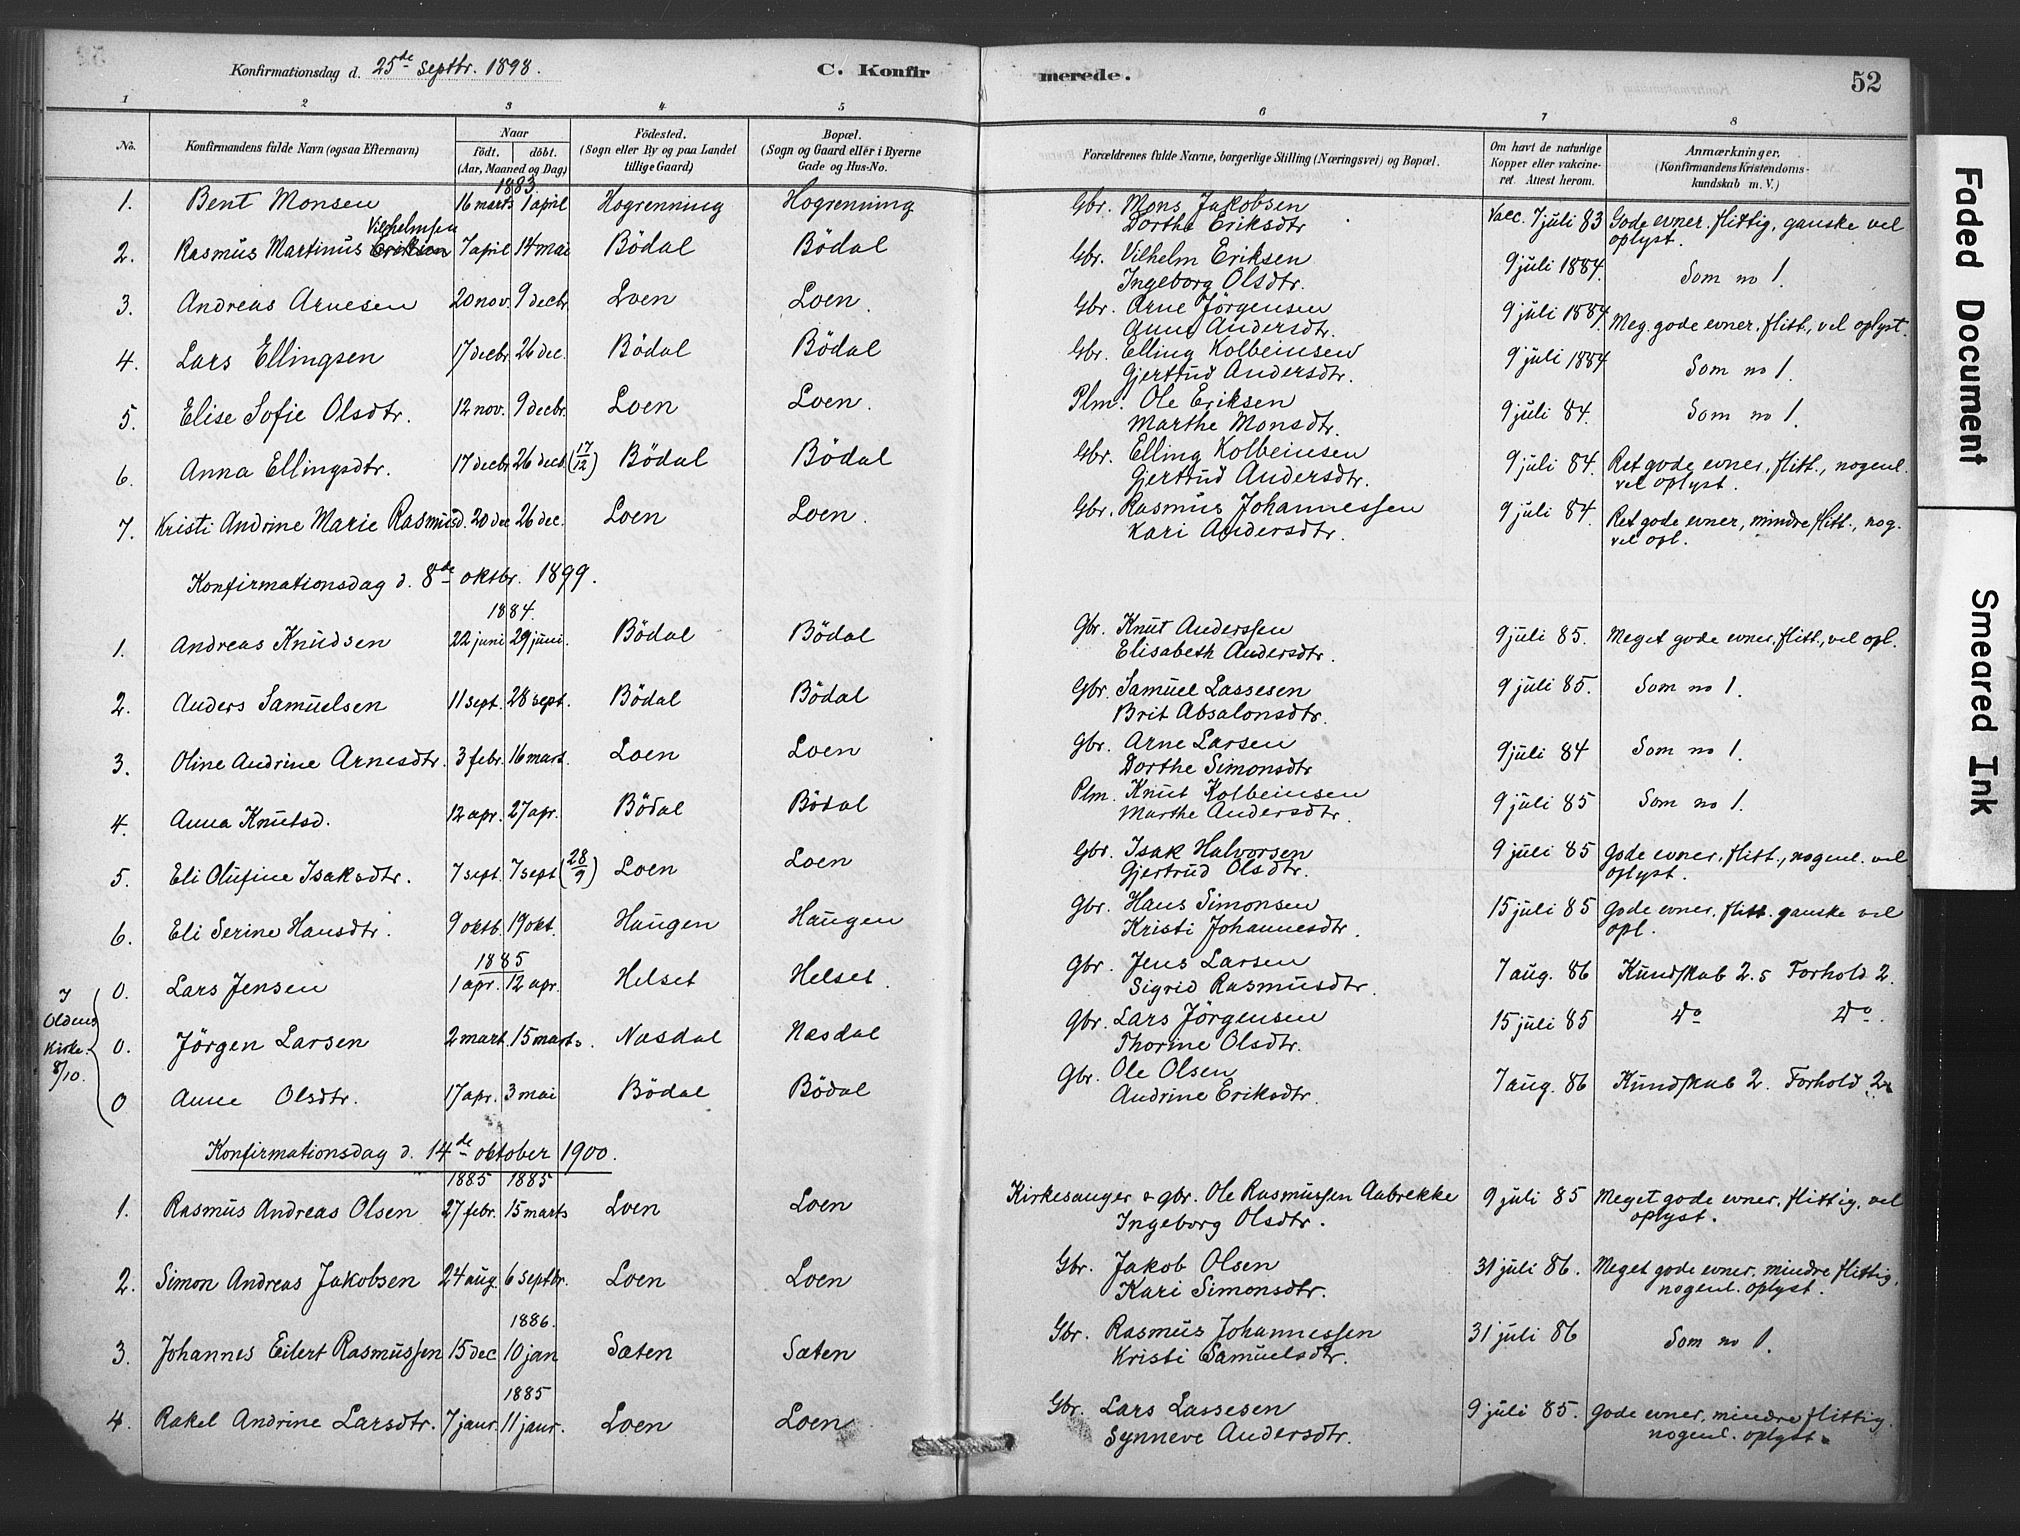 Konfirmationsdag d. 25de septbr. 1898.
C. Konfirmerede.
52
1 2 3 4 5 6 7 8
No.
Konfirmandens fulde Navn (ogsaa Efternavn)
Naar
födt. döbt.
(Aar, Maaned og Dag)
Födested.
(Sogn eller By og paa Landet
tillige Gaard)
Bopæl.
(Sogn og Gaard eller i Byerne
Gade og Hus-No.
Forældrenes fulde Navne, borgerlige Stilling (Næringsvei) og Bopæl.
Om havt de naturlige
Kopper eller vakcineret. Attest herom.
Anmærkninger.
(Konfirmandens Kristendomskundskab m. V.)
1883.
1. Bent Monsen 16 marts 1 april Hogrenning Hogrenning Gbr. Mons Jakobsen Vacc. 7 juli 83 Gode evner, flittig, ganske vel
Dorthe Eriksdtr oplyst.
Vilhelmsen
2. Rasmus Martinus Eriksen 7 april 14 mai Bödal Bödal Gbr. Vilhelm Eriksen 9 juli 1884. Som no 1.
Ingeborg Olsdtr.
3. Andreas Arnesen 20 nov. 9 decbr Loen Loen. Gbr. Arne Jörgensen 9 juli 1884. Meg. gode evner, flitt., vel oplyst.
Anna Andersdtr.
4. Lars Ellingsen 17 decbr 26 dec. Bödal Bödal Gbr. Elling Kolbeinsen 9 juli 1884 Som no 1.
Gjertrud Andersdtr.
5. Elise Sofie Olsdtr. 12 nov. 9 decbr. Loen Loen. Plm. Ole Eriksen 9 juli 84. Som no 1.
Marthe Monsdtr.
6. Anna Ellingsdtr. 17 decbr 26 decb. (17/12) Bödal Bödal Gbr. Elling Kolbeinsen 9 juli 84. Ret gode evner, flitt., nogenl.
Gjertrud Andersdtr. vel oplyst.
7. Kristi Andrine Marie Rasmusd. 20 dec 26 dec. Loen Loen. Gbr. Rasmus Johannessen 9 juli 84. Ret gode evner, mindre flitt., nog.
Kari Andersdtr. vel opl.
Konfirmationsdag d. 8de oktbr. 1899.
1884.
1. Andreas Knudsen 22 juni 29 juni. Bödal Bödal Gbr. Knut Anderssen 9 juli 85. Meget gode evner, flitt, vel opl.
Elisabeth Andersdtr.
2. Anders Samuelsen 11 sept. 28 sept. Bödal Bödal Gbr. Samuel Lassesen 9 juli 85. Som no 1.
Brit Absalonsdtr.
3. Oline Andrine Arnesdtr. 3 febr. 16 mart. Loen Loen Gbr. Arne Larsen 9 juli 84 Som no 1.
Dorthe Simonsdtr
4. Anna Knutsd. 12 apr. 27 apr. Bödal Bödal Plm. Knut Kolbeinsen 9 juli 85 Som no 1.
Marthe Andersdtr.
5. Eli Olufine Isaksdtr. 7 sept. 7 sept (28/9) Loen Loen Gbr. Isak Halvorsen 9 juli 85 Gode evner, flitt., nogenl. vel
Gjertrud Olsdtr. oplyst.
6. Eli Serine Hansdtr. 9 oktb. 19 okt. Haugen Haugen Gbr. Hans Simonsen 15 juli 85 Gode evner, flitt. ganske vel
Kristi Johannesdtr. opl.
1885
I Oldens Kirke 8/10.
0. Lars Jensen 1 apr. 12 apr. Helset Helset. Gbr. Jens Larsen 7 aug. 86 Kundskab 2.5 Forhold 2.
Sigrid Rasmusdtr.
0. Jörgen Larsen 2 mart. 15 marts. Næsdal Næsdal Gbr. Lars Jörgensen 15 juli 85 do do.
Thorine Olsdtr.
0 Anne Olsdtr. 17 apr. 3 mai Bödal Bödal Gbr. Ole Olsen 7 aug. 86 Kundskab 2. Forhold 2.
Andrine Eriksdtr.
Konfirmationsdag d. 14de oktober 1900.
1885 1885
1. Rasmus Andreas Olsen 27 febr. 15 marts Loen Loen Kirkesanger & gbr. Ole Rasmussen Aabrekke 9 juli 85 Meget gode evner, flittig, vel
Ingeborg Olsdtr. oplyst.
2. Simon Andreas Jakobsen 24 aug. 6 septbr. Loen Loen Gbr. Jakob Olsen 31 juli 86. Meget gode evner, mindre flittig,
Kari Simonsdtr. nogenl. oplyst.
1886.
3. Johannes Eilert Rasmussen 15 dec 10 jan Sæten Sæten Gbr. Rasmus Johannessen 31 juli 86 Som no 1.
Kristi Samuelsdtr.
1885
4. Rakel Andrine Larsdtr. 7 janr. 11 janr. Loen Loen Gbr. Lars Lassesen 9 juli 85. Gode evner, mindre flittig.
Synneve Andersdtr. nogenl. oplyst.
Faded Document
Smeared Ink